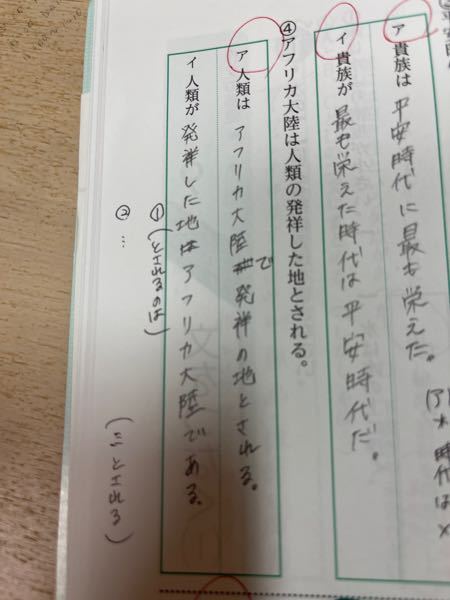 ア 貴族は 平安時代に最も栄えた。
イ 貴族が 最も栄えた時代は平安時代だ。
④アフリカ大陸は人類の発祥した地とされる。
ア 人類は アフリカ大陸で発祥の地とされる。
イ 人類が 発祥した地はアフリカ大陸である。
①(とされるのは)
②…
(ことされる)